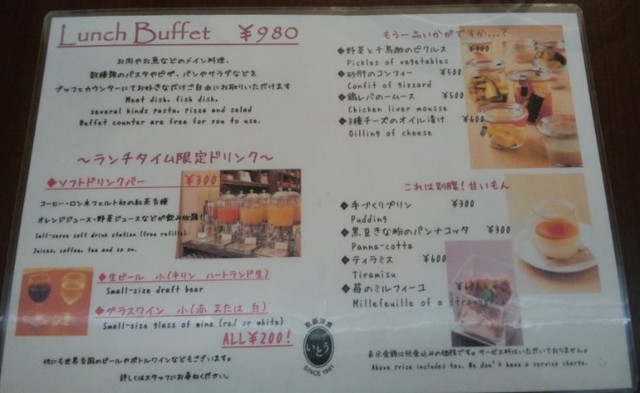 Lunch Buffet ¥980
お肉やお魚などのメイン料理、
数種類のパスタやピザ、パンやサラダなどを
ブッフェカウンターにてお好きなだけご自由にお取りいただけます
Meat dish, fish dish,
several kinds pasta, pizza and salad
Buffet counter are free for you to use.
～ランチタイム限定ドリンク～
◆ソフトドリンクバー ¥300
コーヒー・ロンネフェルト社の紅茶各種
オレンジジュース・野菜ジュースなどが飲み放題!
Self-serve soft drink station (free refills).
Juices, coffee, tea and so on.
◆生ビール 小(キリン ハートランド生)
Small-size draft beer
◆グラスワイン 小(赤 または 白)
Small-size glass of wine (red or white)
ALL¥200!
他にも世界各国のビールやボトルワインなどもございます。
詳しくはスタッフにお尋ねください。
いとう
SINCE 1981
もう一品いかがですか...?
◆野菜と千鳥酢のピクルス ¥400
Pickles of vegetables
◆砂肝のコンフィー ¥500
Confit of gizzard
◆鶏レバのームース ¥500
Chicken liver mousse
◆3種チーズのオイル漬け ¥600
Oilling of cheese
これは別腹!甘いもん
◆手づくりプリン ¥300
Pudding
◆黒豆きな粉のパンナコッタ ¥300
Panna-cotta
◆ティラミス ¥600
Tiramisu
◆苺のミルフィーユ
Millefeuille of a strawberry
表示金額は税金込みの価格です。サービス料はいただいておりません。
Above price includes tax. We don't have a service charge.